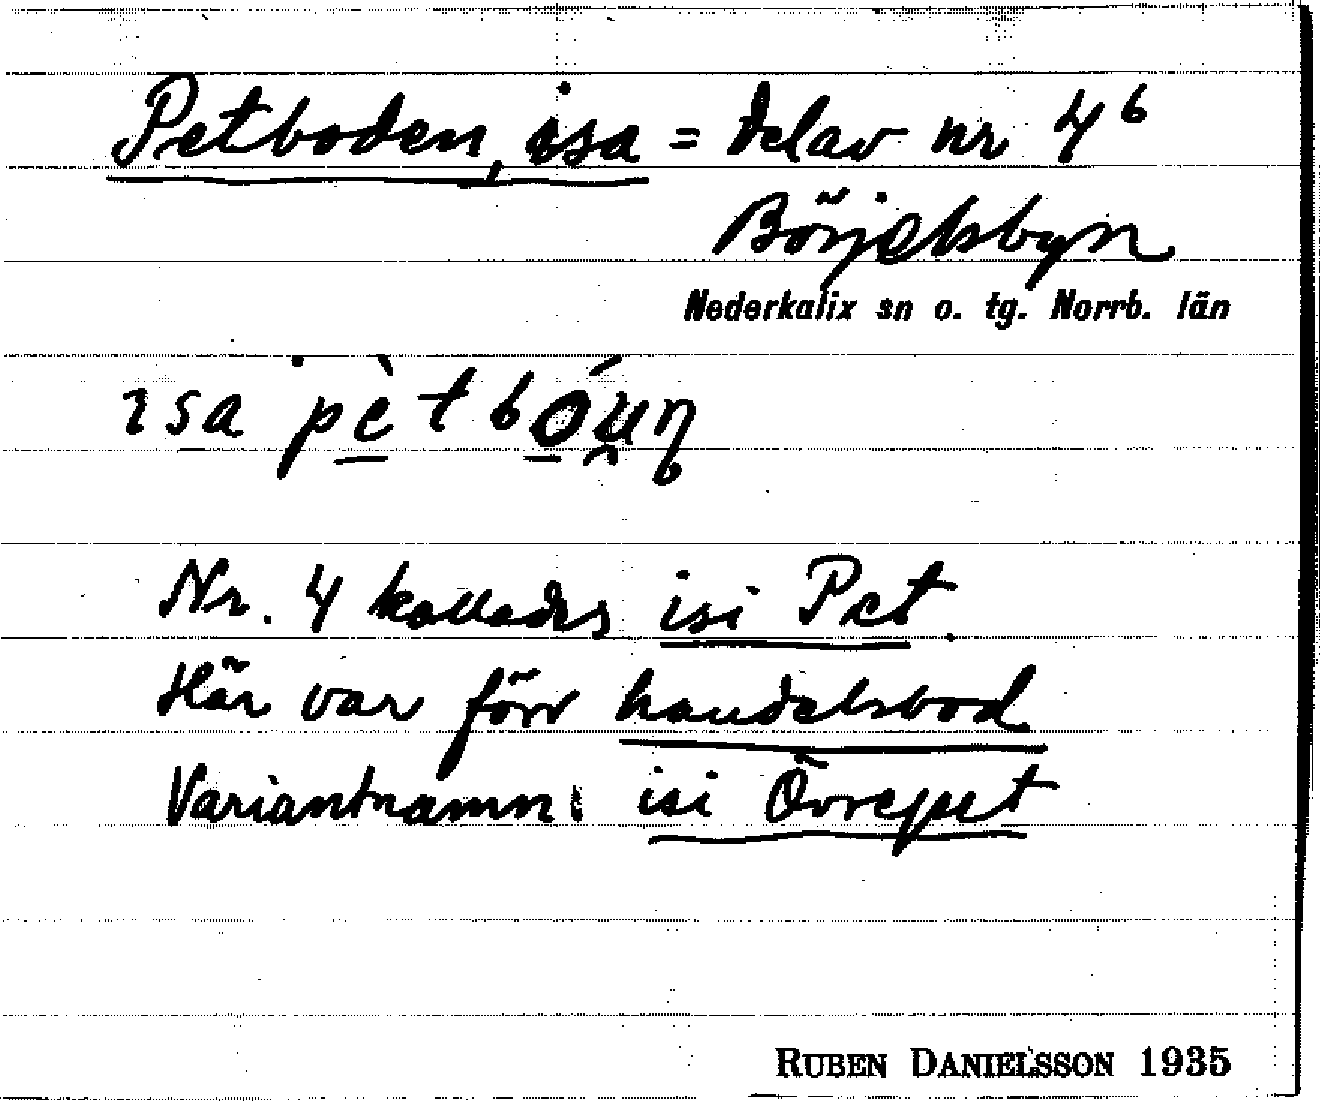 Petboden, isa = del av nr 4b
Börjelsbyn
Nederkalix sn o. tg. Norrb. län
ısa pètbóu̯n̥
Nr. 4 kallades isi Pet.
Här var förr handelsbod
Variantnamn: isi Övrepet
RUBEN DANIELSSON 1935